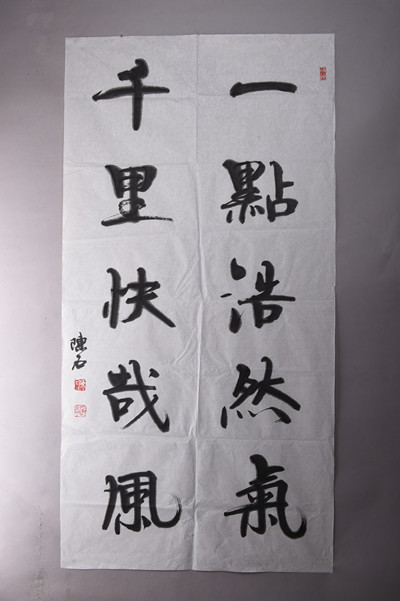 一點浩然氣
千里快哉風
陳名